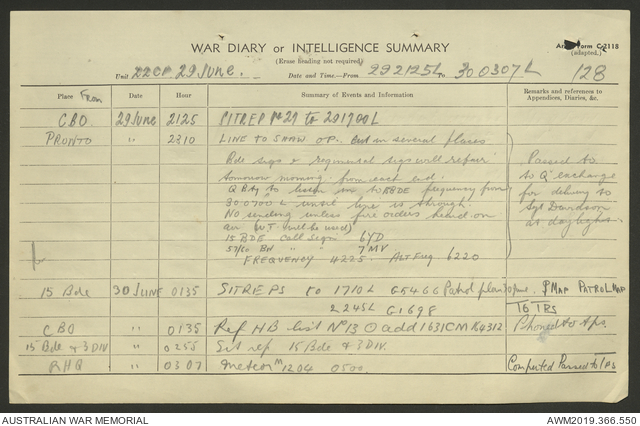 WAR DIARY or INTELLIGENCE SUMMARY
Form C.2118
(Erase heading not required)
(adapted.)
Unit 29 JUNE. Date and Time—From 292125L to 300307L 128
Place From Date Hour Summary of Events and Information Remarks and references to Appendices, Diaries, &c.
CBO 29 JUNE 2125 SITREP No 29 to 291700L
PRONTO " 2210 LINE to SHAW OP. But in several places
Bde sigs & regimental sigs will repair
tomorrow morning from each end.
Q Bty to listen in to BDE frequency from
300700L until line is through.
No sending unless fire orders heard on
air (W.T. will be used)
Passed to
to Q exchange
for delivery to
Sgt Davidson
at daylight
15 BDE Call Sign 6YD
57/60 Bn " 7MV
FREQUENCY 4225. Alt Freq 6220
15 Bde 30 JUNE 0135 SITREPS to 1710L G5466 Patrol plan 30 June. MAP PATROL MAP
2245L G1698 TO IRS
CBO " 0135 Ref HB list No 13 add 1631CM K4312 Phoned to
15 Bde & 3 DIV " 0255 Sit rep 15 Bde & 3 DIV.
RHQ " 0307 Meteor M 1204 0500. Computed Passed to
AUSTRALIAN WAR MEMORIAL AWM2019.366.550